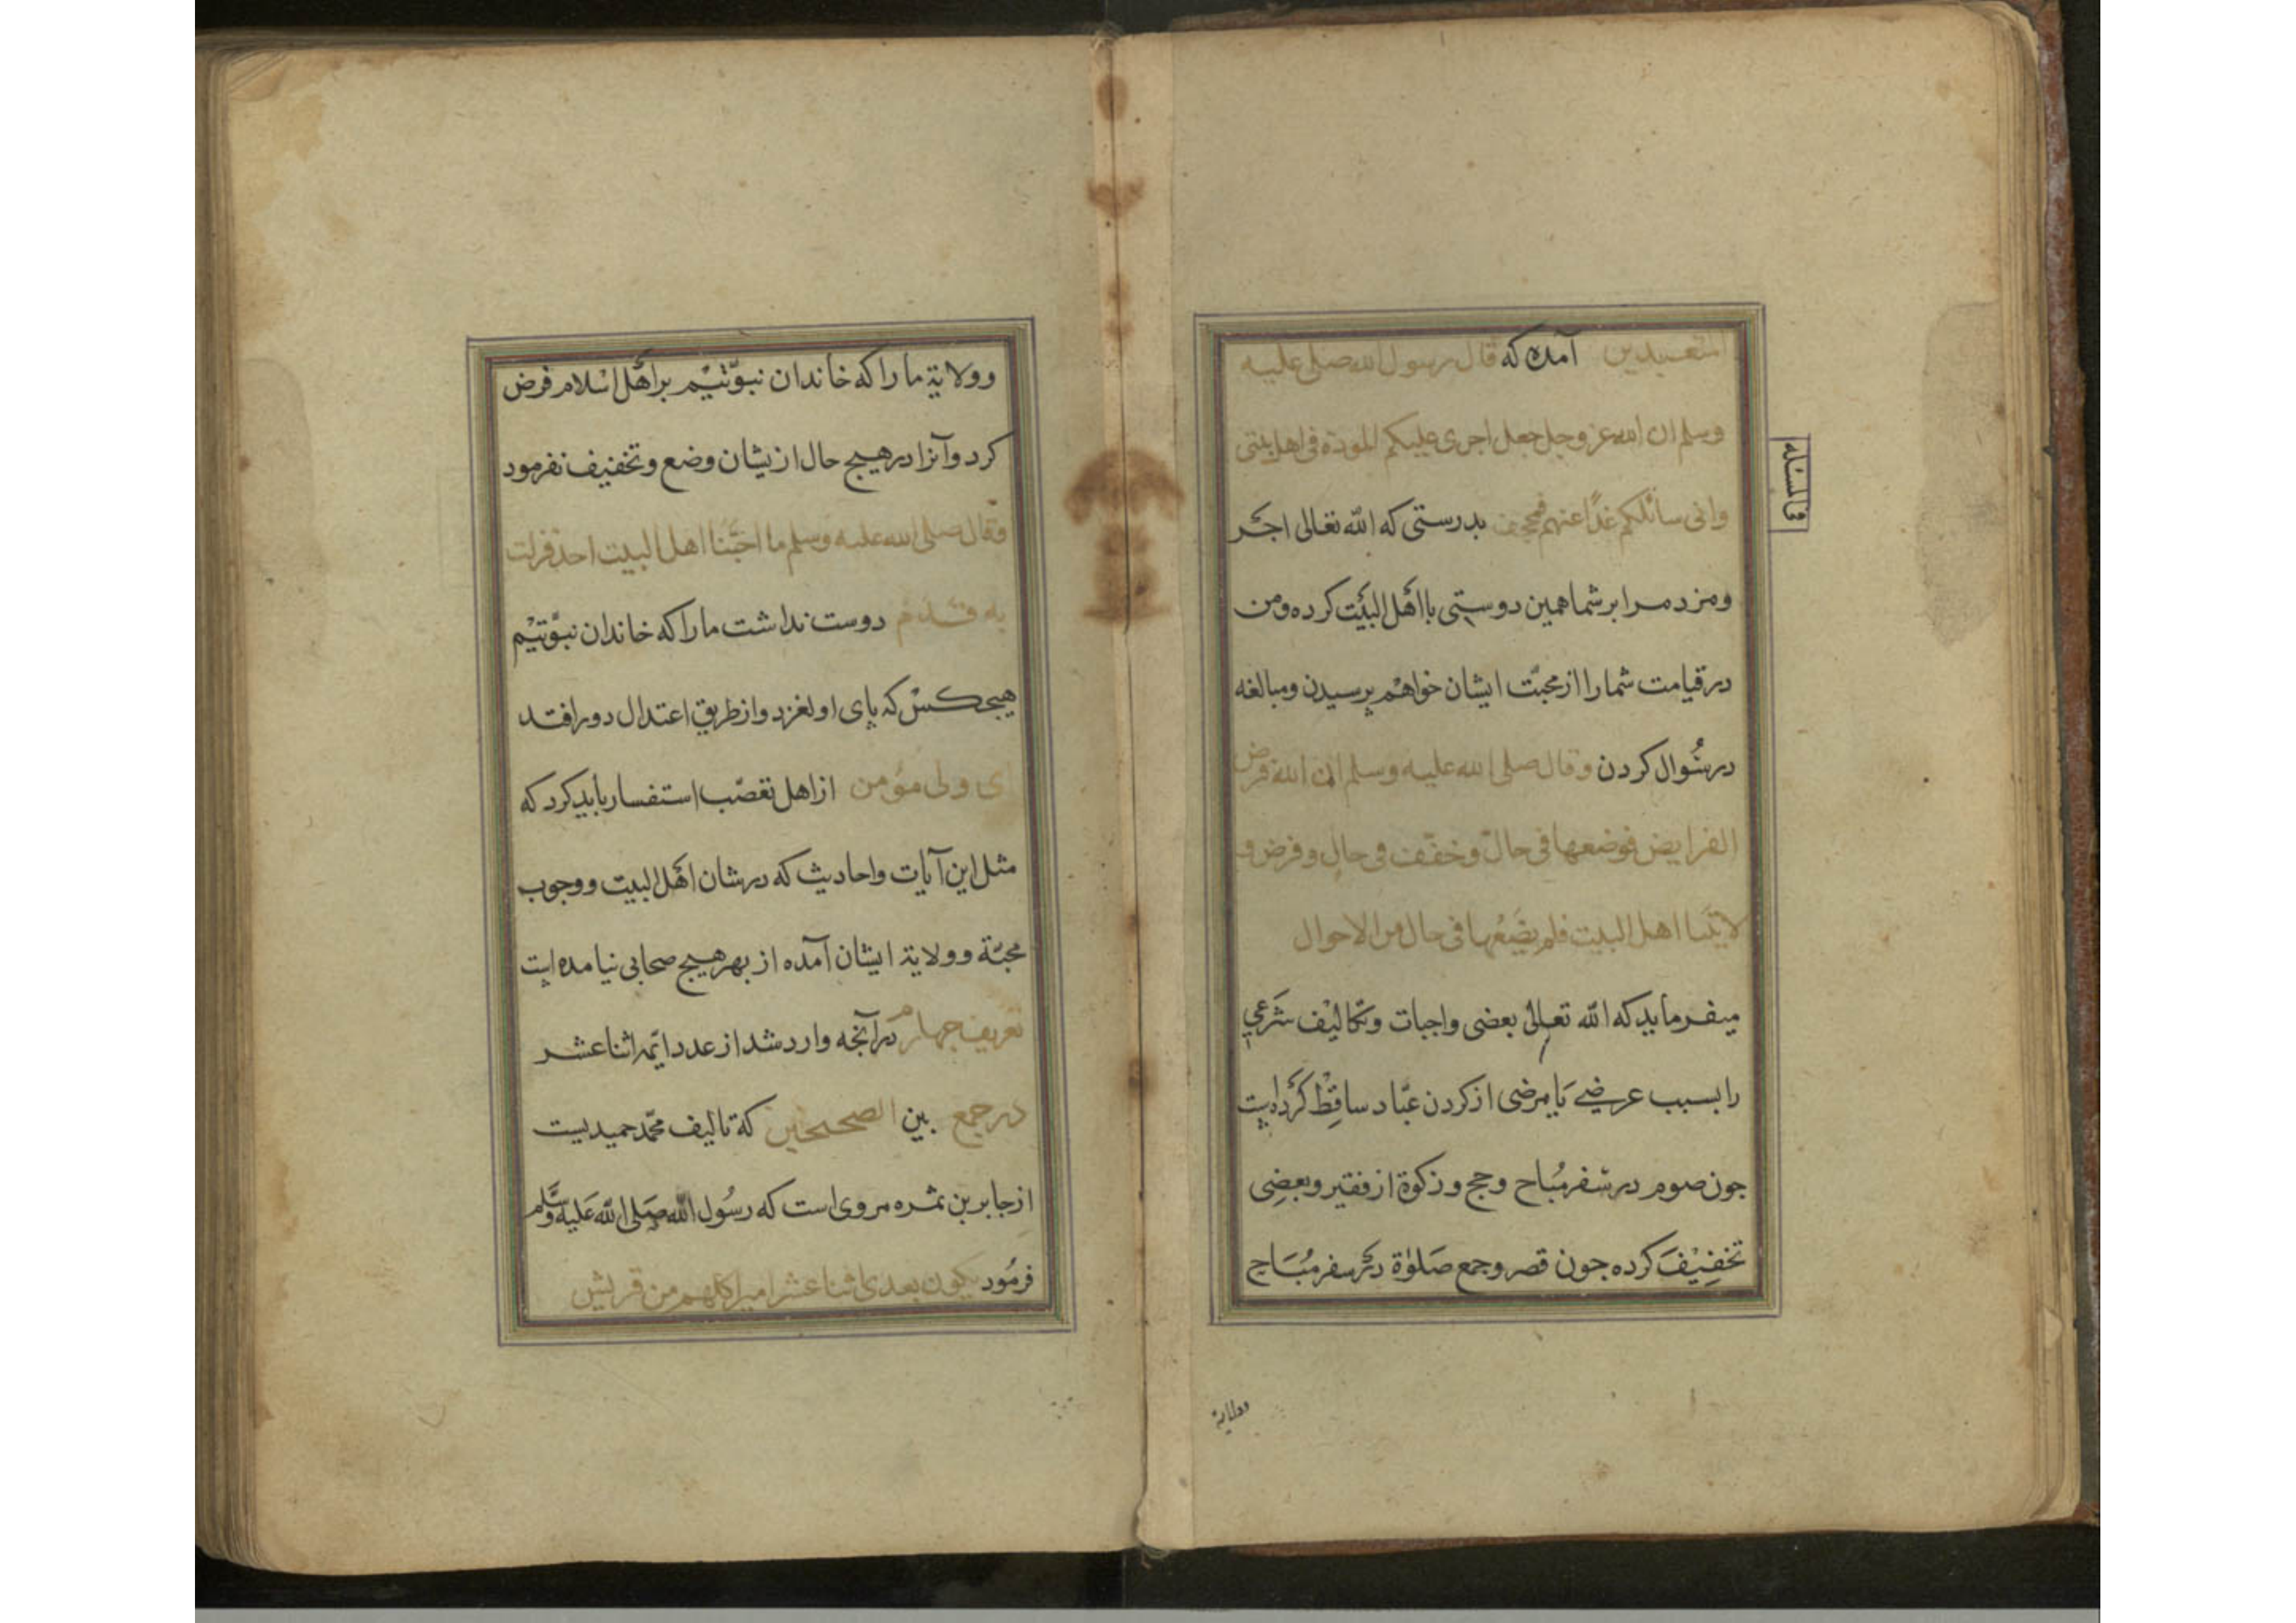 المتعبدین آمده که قال رسول الله صلی علیه
وسلم ان الله عز وجل جعل اجری علیکم المودة فی اهل بیتی
وانی سائلکم غدًا عنهم بدرستی که الله تعالی اجر
ومزد مرا بر شما همین دوستی با اهل البیت کرده ومن
در قیامت شما را از محبّت ایشان خواهم پرسیدن ومبالغه
در سُوال کردن وقال صلی الله علیه وسلم ان الله فرض
الفرایض فوضعها فی حال وخفّف فی حال وفرض و
لایتنا اهل البیت فلم یضَعْها فی حال من الاحوال
میفرماید که الله تعالی بعضی واجبات وتکالیف شرعی
را بسبب عرضی یا مرضی از کردن عبّاد ساقط کرده است
جون صوم در سفر مُباح وحج وزکوة از فقیر وبعضی
تخفیف کرده جون قصر وجمع صلوٰة در سفر مُبَاح
وولایة
فی المسئله
وولایة ما را که خاندان نبوّتیم بر اهل اسلام فرض
کرد وآنرا در هیچ حال از یشان وضع وتخفیف نفرمود
وقال صلی الله علیه وسلم ما احَبَّنا اهل البیت احد فزلت
به قدم دوست نداشت ما را که خاندان نبوّتیم
هیجکس که پای او لغزد واز طریق اعتدال دور افتد
ای ولی مؤمن از اهل تعصّب استفسار باید کرد که
مثل این آیات واحادیث که در شان اهل البیت ووجوب
محبّة وولایة ایشان آمده از بهر هیچ صحابی نیامده است
تعریف جهارم در آنجه وارد شد از عدد ایمّه اثنا عشر
در جمع بین الصحیحین که تالیف محمّد حمیدیست
از جابر بن ثمره مروی است که رسُول الله صَلی الله عَلیه وسَلّم
فرمُود یکون بعدی اثنا عشر امیرا کلهم من قریش